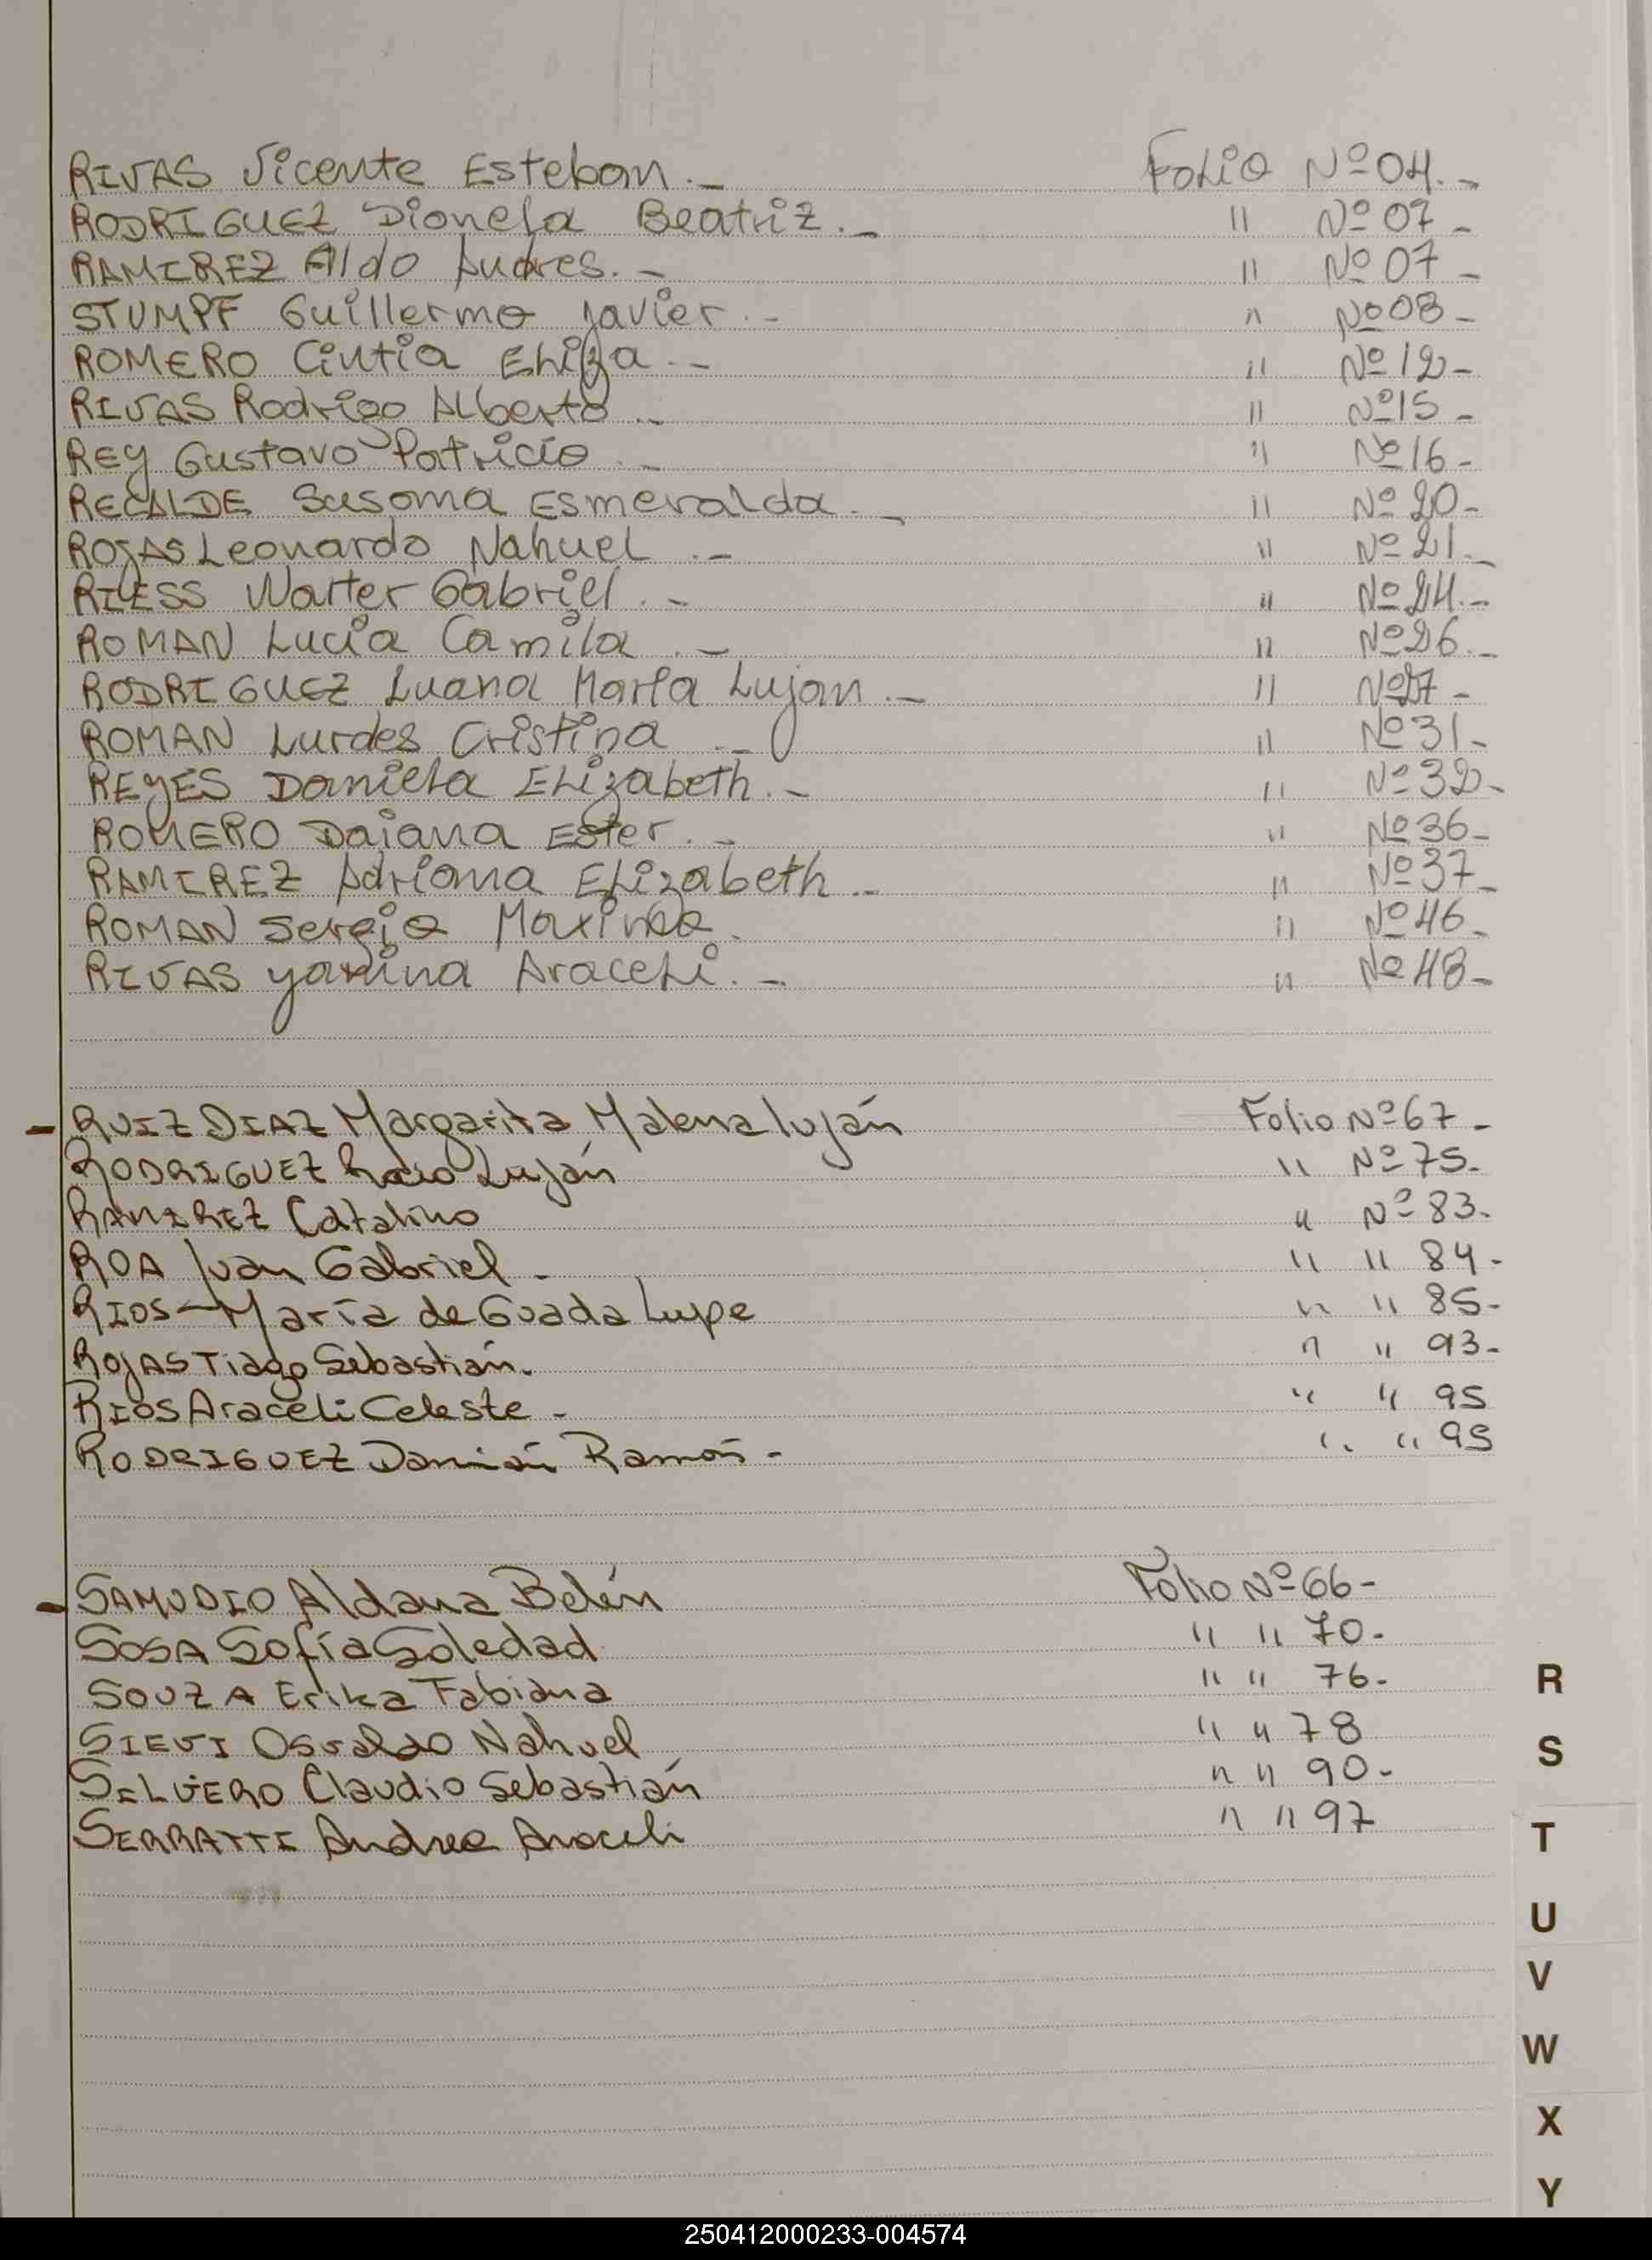 RIVAS Vicente Esteban.- Folio Nº 04.-
RODRIGUEZ Dionela Beatriz.- " Nº 07-
RAMIREZ Aldo Andres.- " Nº 07-
STUMPF Guillermo Javier.- " Nº 08-
ROMERO Cintia Eliza.- " Nº 12-
RIVAS Rodrigo Alberto.- " Nº 15-
REY Gustavo Patricio.- " Nº 16-
RECALDE Susana Esmeralda.- " Nº 20-
ROJAS Leonardo Nahuel.- " Nº 21.-
RIESS Walter Gabriel.- " Nº 24.-
ROMAN Lucia Camila.- " Nº 26.-
RODRIGUEZ Luana Maria Lujan.- " Nº 27-
ROMAN Lurdes Cristina.- " Nº 31-
REYES Daniela Elizabeth.- " Nº 32-
ROMERO Daiana Ester.- " Nº 36-
RAMIREZ Adriana Elizabeth.- " Nº 37-
ROMAN Sergio " Nº 46-
RIVAS Yanina Araceli.- " Nº 48-
- RUIZ DIAZ Margarita Malena Luján Folio Nº 67-
RODRIGUEZ Rocio Luján " Nº 75-
RAMIREZ Catalino " Nº 83-
ROA Ivan Gabriel- " " 84-
RIOS-María de Guadalupe " " 85-
ROJAS Tiago Sebastián. " " 93-
RIOS Araceli Celeste- " " 95
RODRIGUEZ Damián Ramón- " " 95
- SAMUDIO Aldana Belén Folio Nº 66-
SOSA Sofía Soledad " " 70-
SOUZA Erika Fabiana " " 76-
SIEVI Osvaldo Nahuel " " 78
Claudio Sebastián " " 90-
SERRATTI Andrea Araceli " " 97
R
S
T
U
V
W
X
Y
250412000233-004574